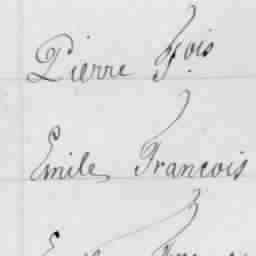 Pierre Fois
Emile Francois